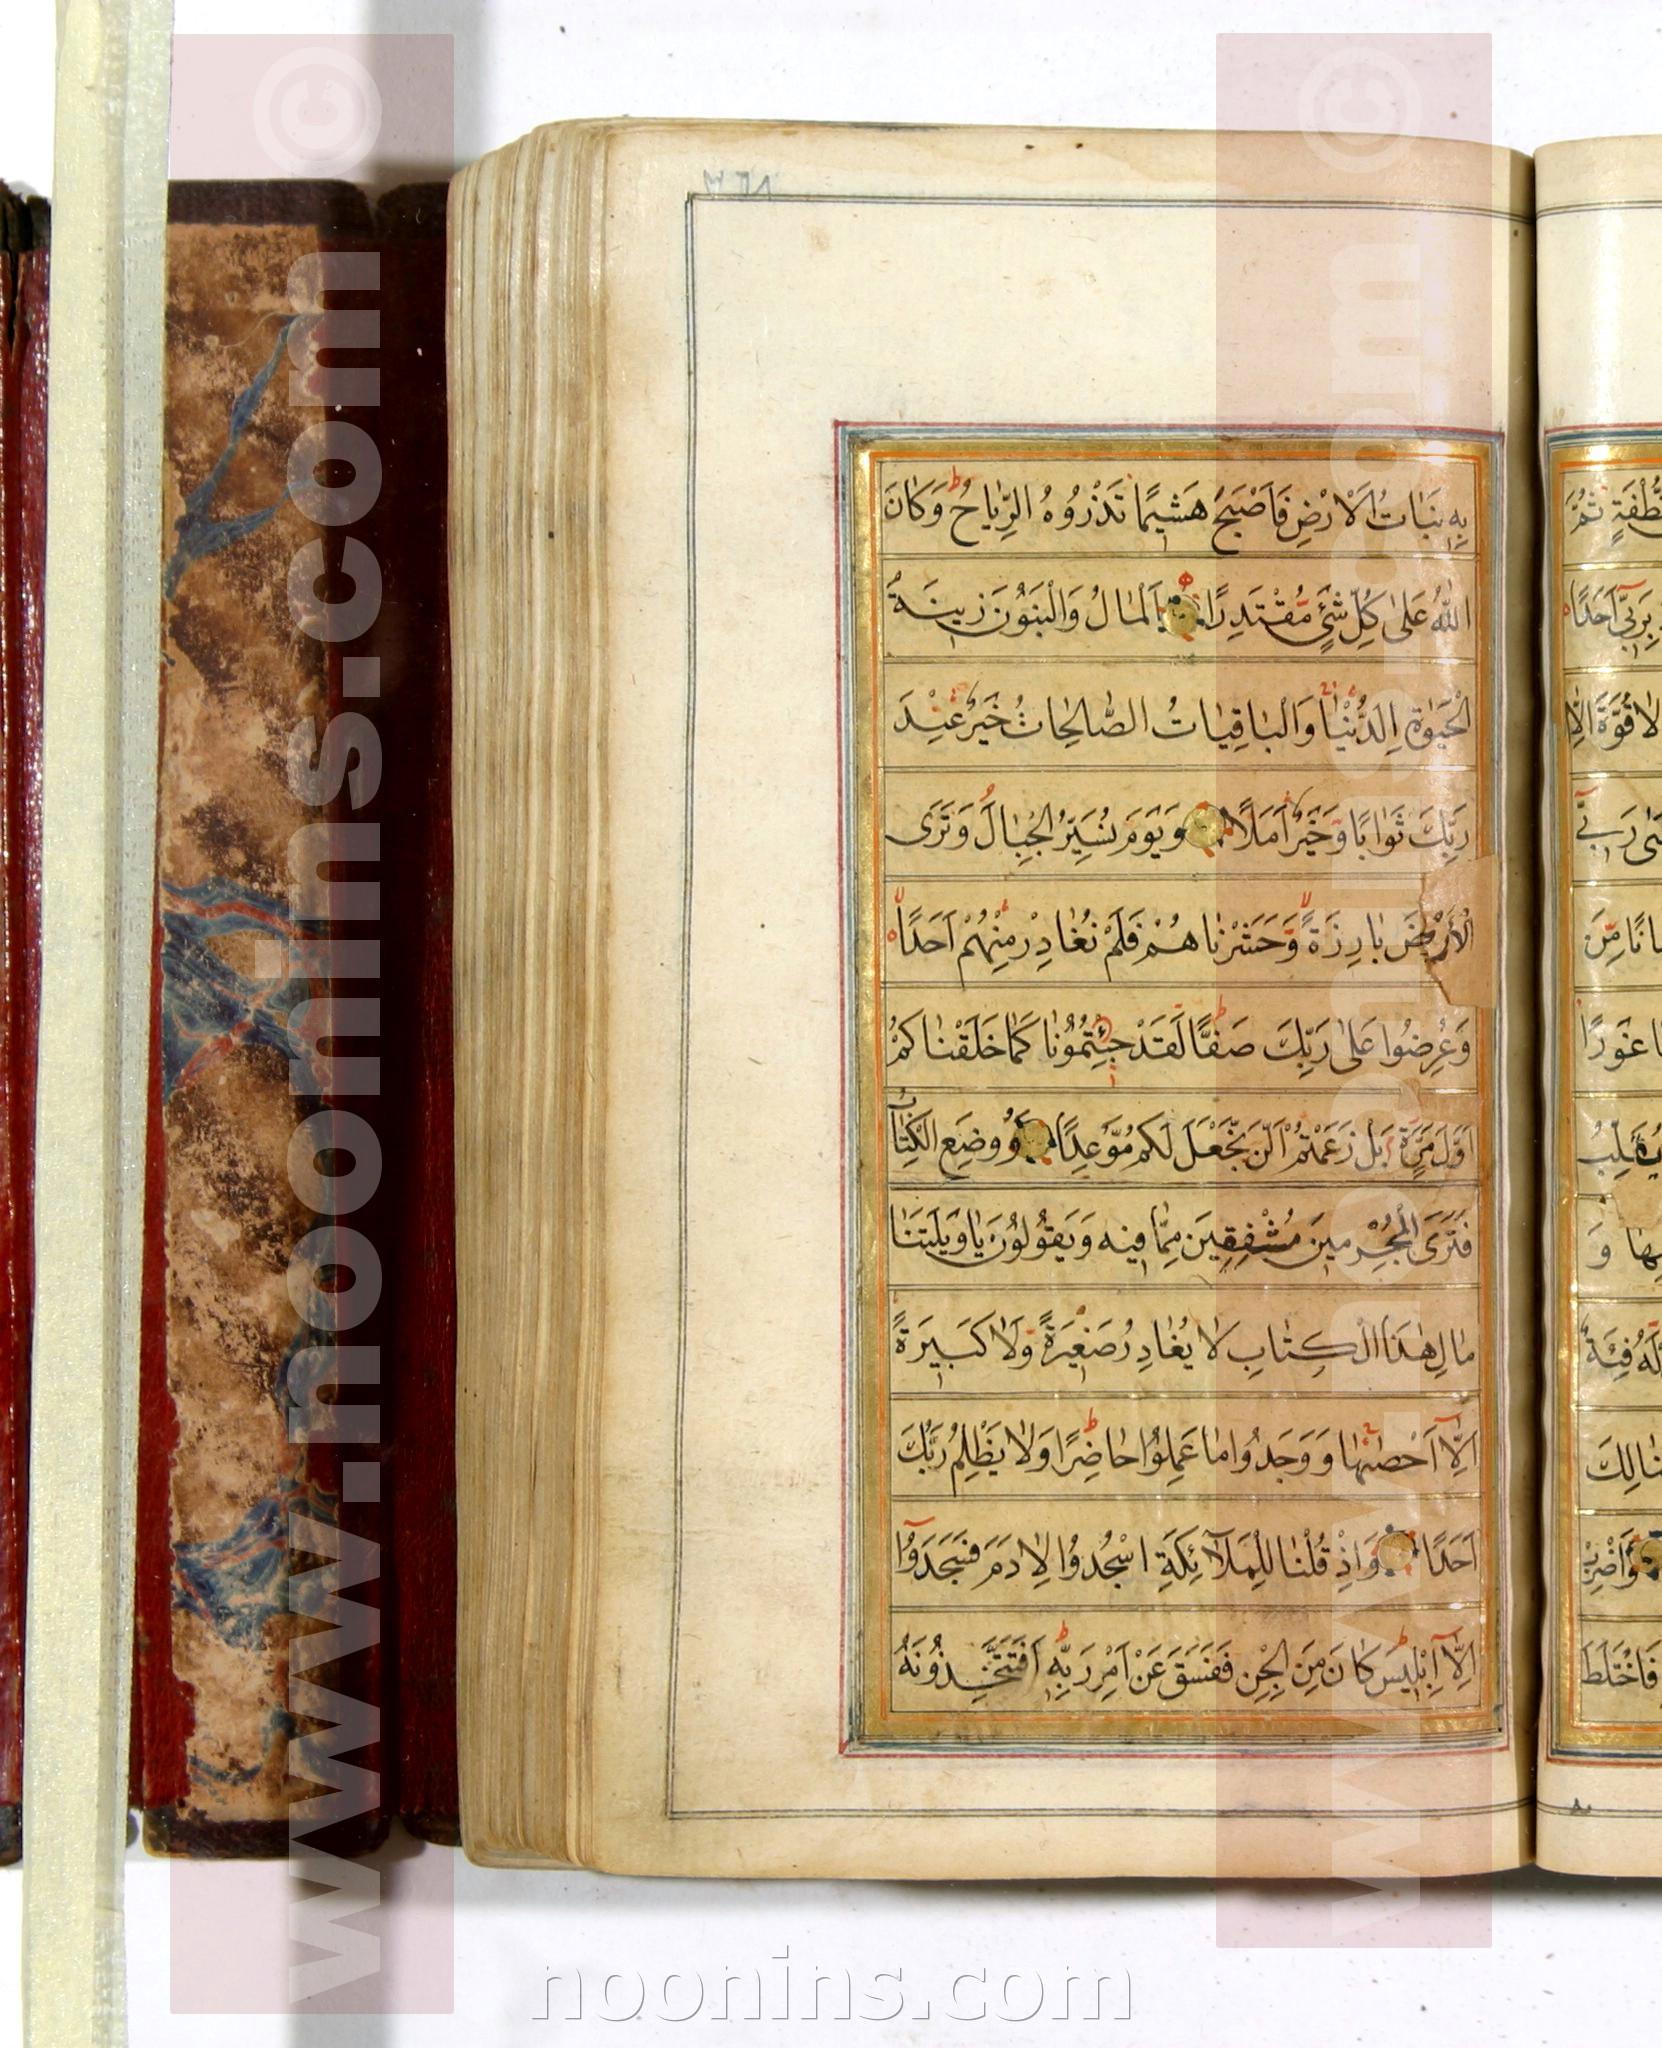 بِهِ نَبَاتُ الْاَرْضِ فَاَصْبَحَ هَشيمًا تَذْرُوهُ الرِّيٰاحُ وَكٰانَ
اللّٰهُ عَلىٰ كُلِّ شَيْءٍ مُقْتَدِرًا اَلْمٰالُ وَالْبَنُونَ زينَةُ
الْحَيٰوةِ الدُّنْيٰا وَالْبٰاقِيٰاتُ الصّٰالِحٰاتُ خَيْرٌ عِنْدَ
رَبِّكَ ثَوٰابًا وَخَيْرٌ اَمَلًا وَيَوْمَ نُسَيِّرُ الْجِبٰالَ وَتَرَى
الْاَرْضَ بٰارِزَةً وَحَشَرْنٰاهُمْ فَلَمْ نُغٰادِرْ مِنْهُمْ اَحَدًا
وَعُرِضُوا عَلىٰ رَبِّكَ صَفًّا لَقَدْ جِئْتُمُونٰا كَمٰا خَلَقْنٰاكُمْ
اَوَّلَ مَرَّةٍ بَلْ زَعَمْتُمْ اَلَّنْ نَجْعَلَ لَكُمْ مَوْعِدًا وَوُضِعَ الْكِتٰابُ
فَتَرَى الْمُجْرِمينَ مُشْفِقِينَ مِمّٰا فيهِ وَيَقُولُونَ يٰا وَيْلَتَنٰا
مٰالِ هٰذَا الْكِتٰابِ لٰا يُغٰادِرُ صَغيرَةً وَلٰا كَبيرَةً
اِلّٰا اَحْصٰيهٰا وَوَجَدُوا مٰا عَمِلُوا حٰاضِرًا وَلٰا يَظْلِمُ رَبُّكَ
اَحَدًا وَاِذْ قُلْنٰا لِلْمَلٰآئِكَةِ اسْجُدُوا لِاٰدَمَ فَسَجَدُوا
اِلّٰا اِبْليسَ كٰانَ مِنَ الْجِنِّ فَفَسَقَ عَنْ اَمْرِ رَبِّهِ اَفَتَتَّخِذُونَهُ
ثُمَّ
بِرَبّي اَحَدًا
لٰا قُوَّةَ اِلّٰا
رَبّي
مِنَ
غَوْرًا
يُقَلِّبُ
وَ
لَهُ فِئَةٌ
هُنٰالِكَ
وَاضْرِبْ
فَاخْتَلَطَ
www.noonins.com ©
www.noonins.com ©
noonins.com